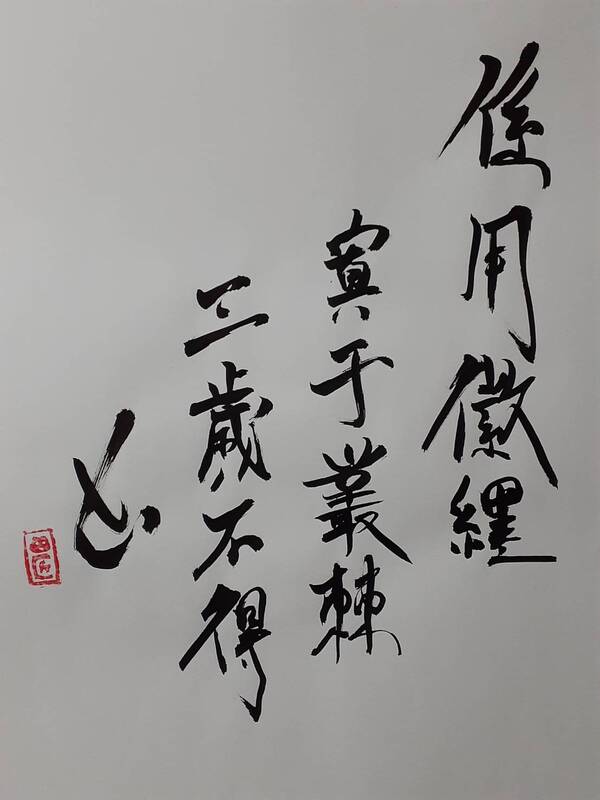 係用徽纆
寘于叢棘
三歲不得
凶